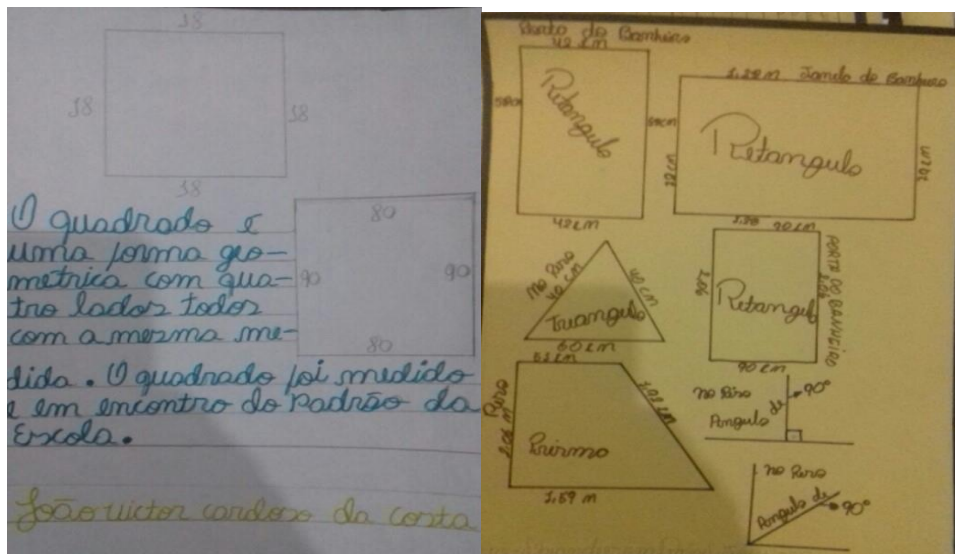 38
38
38
38
O quadrado e
uma forma geo-
metrica com qua-
tro lados todos
com a mesma me-
dida. O quadrado foi medido
e em encontro do Padrão da
Escola.
80
90
90
80
João victor cardoso da costa
do Banheiro
42 cm
58cm
Retangulo
42cm
Janela do Banheiro
Retangulo
No Piso
40 cm
40 cm
Triangulo
60 cm
90 cm
2,06
Retangulo
2,06
PORTA DO BANHEIRO
90 cm
Piso
Prismo
1,59 m
no Piso
Angulo de
90°
no Piso
Angulo de
90°